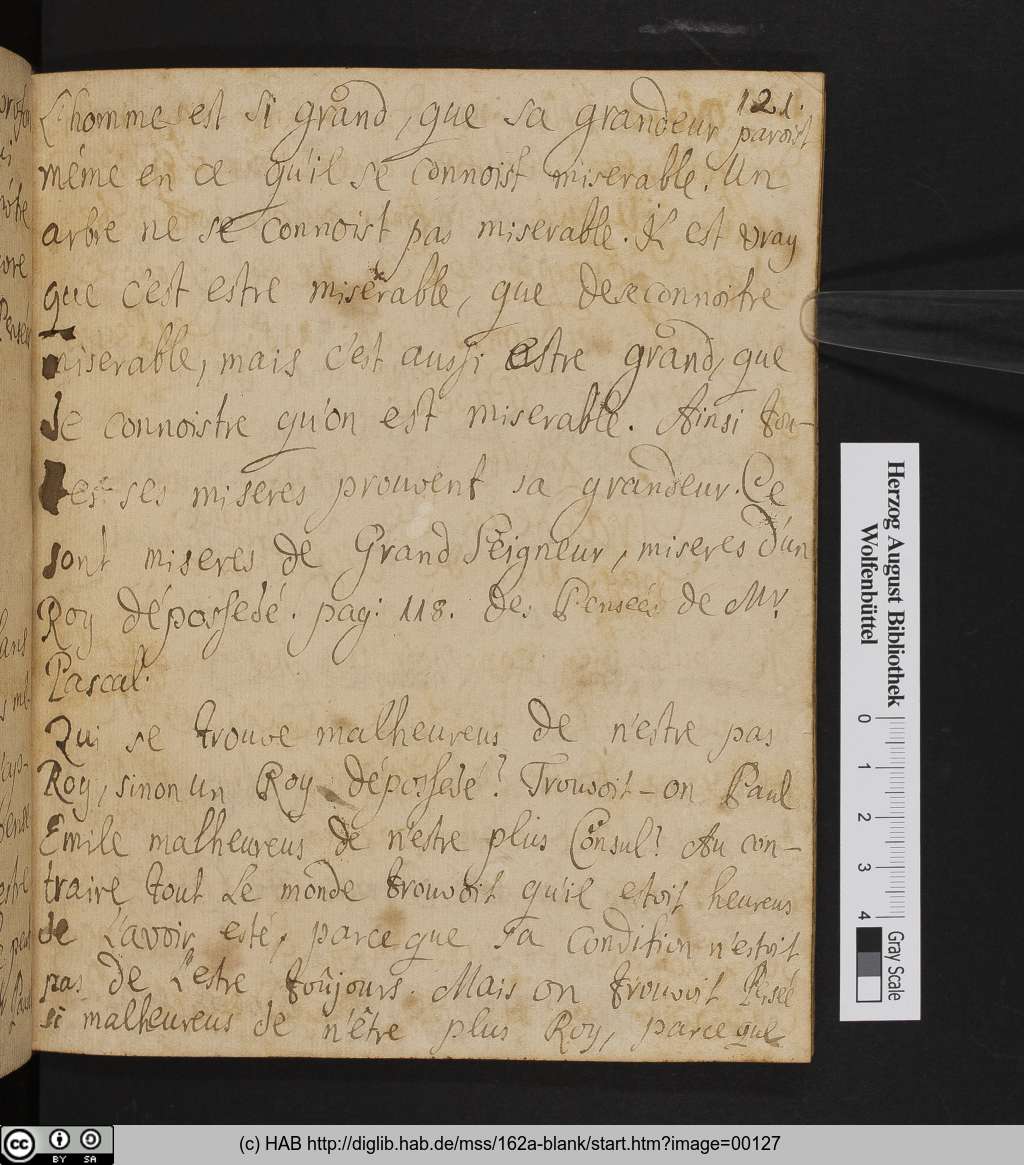 121.
L'homme est si grand, que sa grandeur paroist
même en ce qu'il se connoist miserable. Un
arbre ne se connoist pas miserable. Il est vray
que c'est estre miserable, que de se connoitre
miserable, mais c'est aussi estre grand, que
de connoistre qu'on est miserable. Ainsi tou-
tes ses miseres prouvent sa grandeur. Ce
sont miseres de Grand Seigneur, miseres d'un
Roy dépossedé. pag: 118. des Pensées de Mr.
Pascal.
Qui se trouve malheureus de n'estre pas
Roy, sinon un Roy dépossedé? Trouvoit-on Paul
Emile malheureus de n'estre plus Consul? Au con-
traire tout le monde trouvoit qu'il estoit heureus
de l'avoir esté, parce que sa condition n'estoit
pas de l'estre toûjours. Mais on trouvoit Persée
si malheureus de n'être plus Roy, parce que
Herzog August Bibliothek
Wolfenbüttel
0 1 2 3 4
Gray Scale
cc BY SA
(c) HAB http://diglib.hab.de/mss/162a-blank/start.htm?image=00127